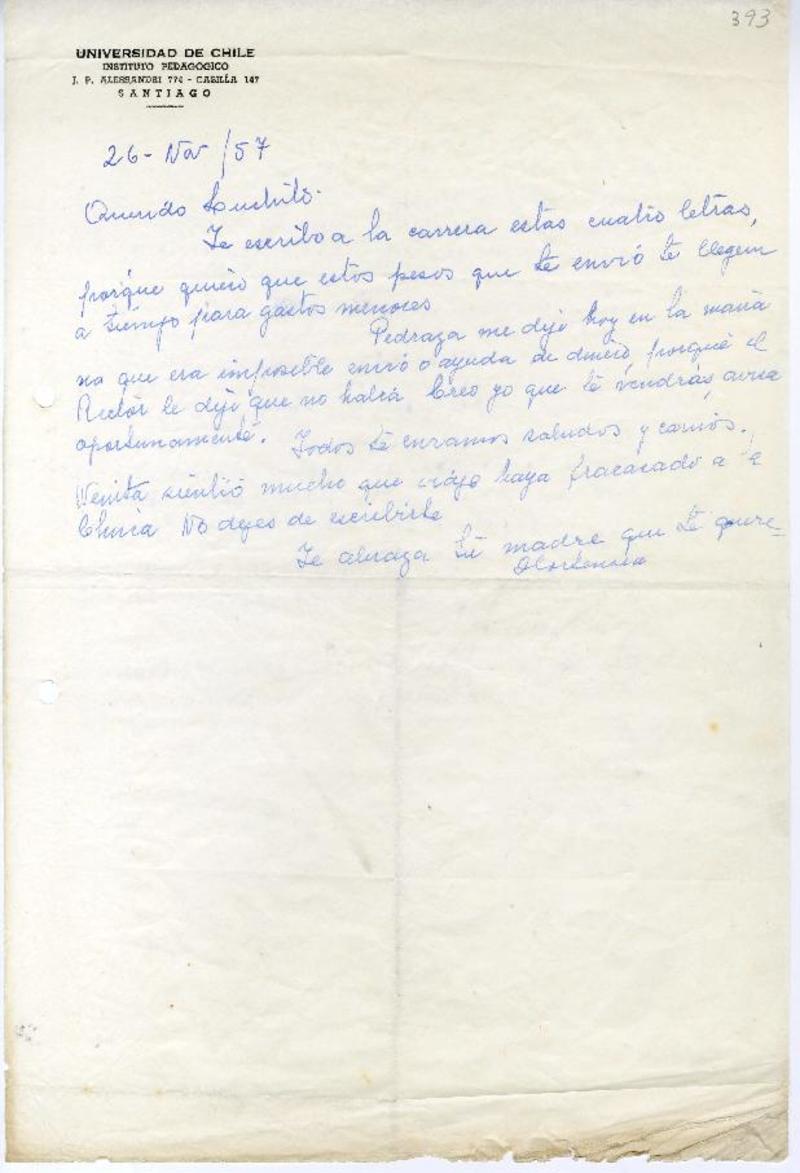 393
UNIVERSIDAD DE CHILE
INSTITUTO PEDAGOGICO
J. P. ALESSANDRI 774 - CASILLA 147
SANTIAGO
26 - Nov / 57
Querido Luchito.
Te escribo a la carrera estas cuatro letras,
porque quiero que estos pesos que te envió te lleguen
a tiempo para gastos menores
Pedraza me dijo hoy en la maña
na que era imposible envió o ayuda de dinero porque el
Rector le dijo que no había Creo yo que te vendrás, avisa
oportunamente. Todos te enviamos saludos y cariños.
Wenita sintió mucho que viaje haya fracasado a
China No dejes de escribirle
Te abraza tú madre que te quiere
Hortensia